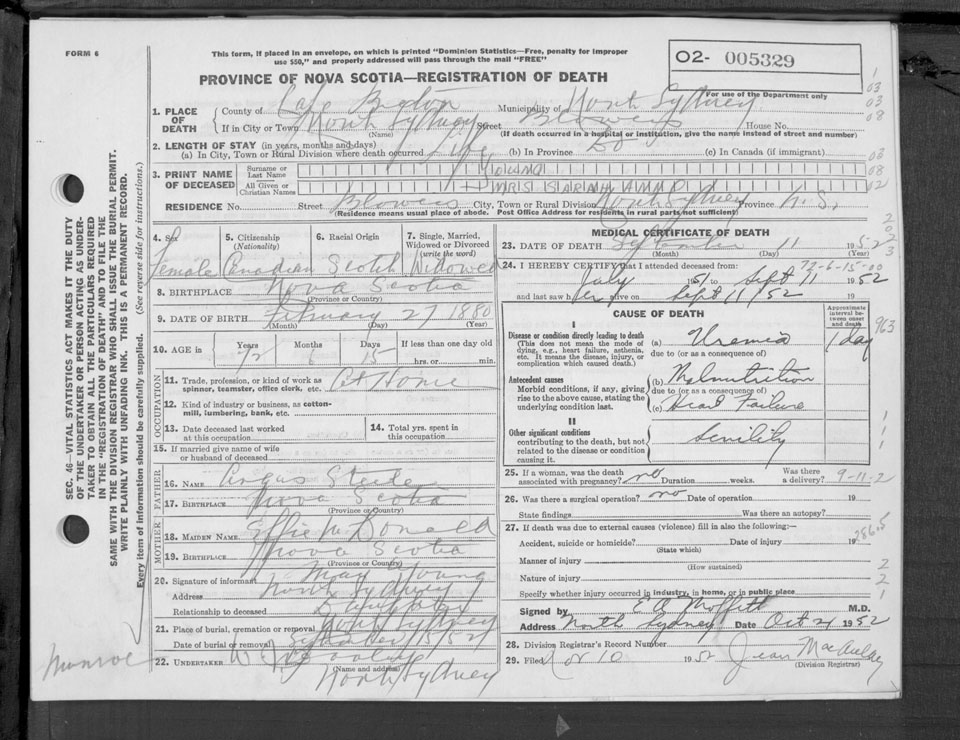 FORM 6
This form, if placed in an envelope, on which is printed "Dominion Statistics—Free, penalty for improper
use $50," and properly addressed will pass through the mail "FREE"
O2- 005329
PROVINCE OF NOVA SCOTIA—REGISTRATION OF DEATH
For use of the Department only
1. PLACE OF DEATH
County of Cape Breton Municipality of North Sydney
If in City or Town North Sydney Street Blowers House No.
(Name) (If death occurred in a hospital or institution, give the name instead of street and number)
2. LENGTH OF STAY (in years, months and days)
(a) In City, Town or Rural Division where death occurred life (b) In Province (c) In Canada (if immigrant)
3. PRINT NAME OF DECEASED
Surname or Last Name
All Given or Christian Names MRS SARAH ANN
RESIDENCE No. Street Blowers City, Town or Rural Division North Sydney Province N.S.
(Residence means usual place of abode. Post Office Address for residents in rural parts not sufficient)
4. Sex Female
5. Citizenship (Nationality) Canadian
6. Racial Origin Scotch
7. Single, Married, Widowed or Divorced (write the word) Widowed
8. BIRTHPLACE Nova Scotia
(Province or Country)
9. DATE OF BIRTH February 27 1880
(Month) (Day) (Year)
10. AGE in Years 72 Months 6 Days 15 If less than one day old
hrs. or min.
OCCUPATION
11. Trade, profession, or kind of work as spinner, teamster, office clerk, etc. At Home
12. Kind of industry or business, as cotton-mill, lumbering, bank, etc.
13. Date deceased last worked at this occupation
14. Total yrs. spent in this occupation
15. If married give name of wife or husband of deceased
FATHER
16. NAME Angus Steele
17. BIRTHPLACE Nova Scotia
(Province or Country)
MOTHER
18. MAIDEN NAME Effie McDonald
19. BIRTHPLACE Nova Scotia
(Province or Country)
20. Signature of informant May Young
Address North Sydney
Relationship to deceased Daughter
21. Place of burial, cremation or removal North Sydney
Date of burial or removal September 15/52
22. UNDERTAKER
(Name and address)
North Sydney
MEDICAL CERTIFICATE OF DEATH
23. DATE OF DEATH September 11 1952
(Month) (Day) (Year)
72-6-15-00
24. I HEREBY CERTIFY that I attended deceased from:
July 51 to Sept 11 1952
and last saw her alive on Sept 11/52 19
CAUSE OF DEATH
Approximate interval between onset and death
I
Disease or condition directly leading to death
(This does not mean the mode of dying, e.g., heart failure, asthenia, etc. It means the disease, injury, or complication which caused death.)
(a) Uremia 1 day
due to (or as a consequence of)
Antecedent causes
Morbid conditions, if any, giving rise to the above cause, stating the underlying condition last.
(b) Malnutrition
due to (or as a consequence of)
(c) Heart Failure
II
Other significant conditions
contributing to the death, but not related to the disease or condition causing it.
Senility
25. If a woman, was the death associated with pregnancy? no Duration weeks. Was there a delivery?
9-11-2
26. Was there a surgical operation? no Date of operation 19
State findings Was there an autopsy?
27. If death was due to external causes (violence) fill in also the following:—
Accident, suicide or homicide? Date of injury 19
(State which)
286.5
Manner of injury
(How sustained)
Nature of injury
Specify whether injury occurred in industry, in home, or in public place
Signed by E A Moffitt M.D.
Address North Sydney Date Oct 21 1952
28. Division Registrar's Record Number
29. Filed Nov 10 1952 Jean MacAulay
(Division Registrar)
SEC. 46—VITAL STATISTICS ACT MAKES IT THE DUTY
OF THE UNDERTAKER OR PERSON ACTING AS UNDER-
TAKER TO OBTAIN ALL THE PARTICULARS REQUIRED
IN THE "REGISTRATION OF DEATH" AND TO FILE THE
SAME WITH THE DIVISION REGISTRAR WHO SHALL ISSUE THE BURIAL PERMIT.
WRITE PLAINLY WITH UNFADING INK. THIS IS A PERMANENT RECORD.
Every item of information should be carefully supplied. (See reverse side for instructions.)
Munroe